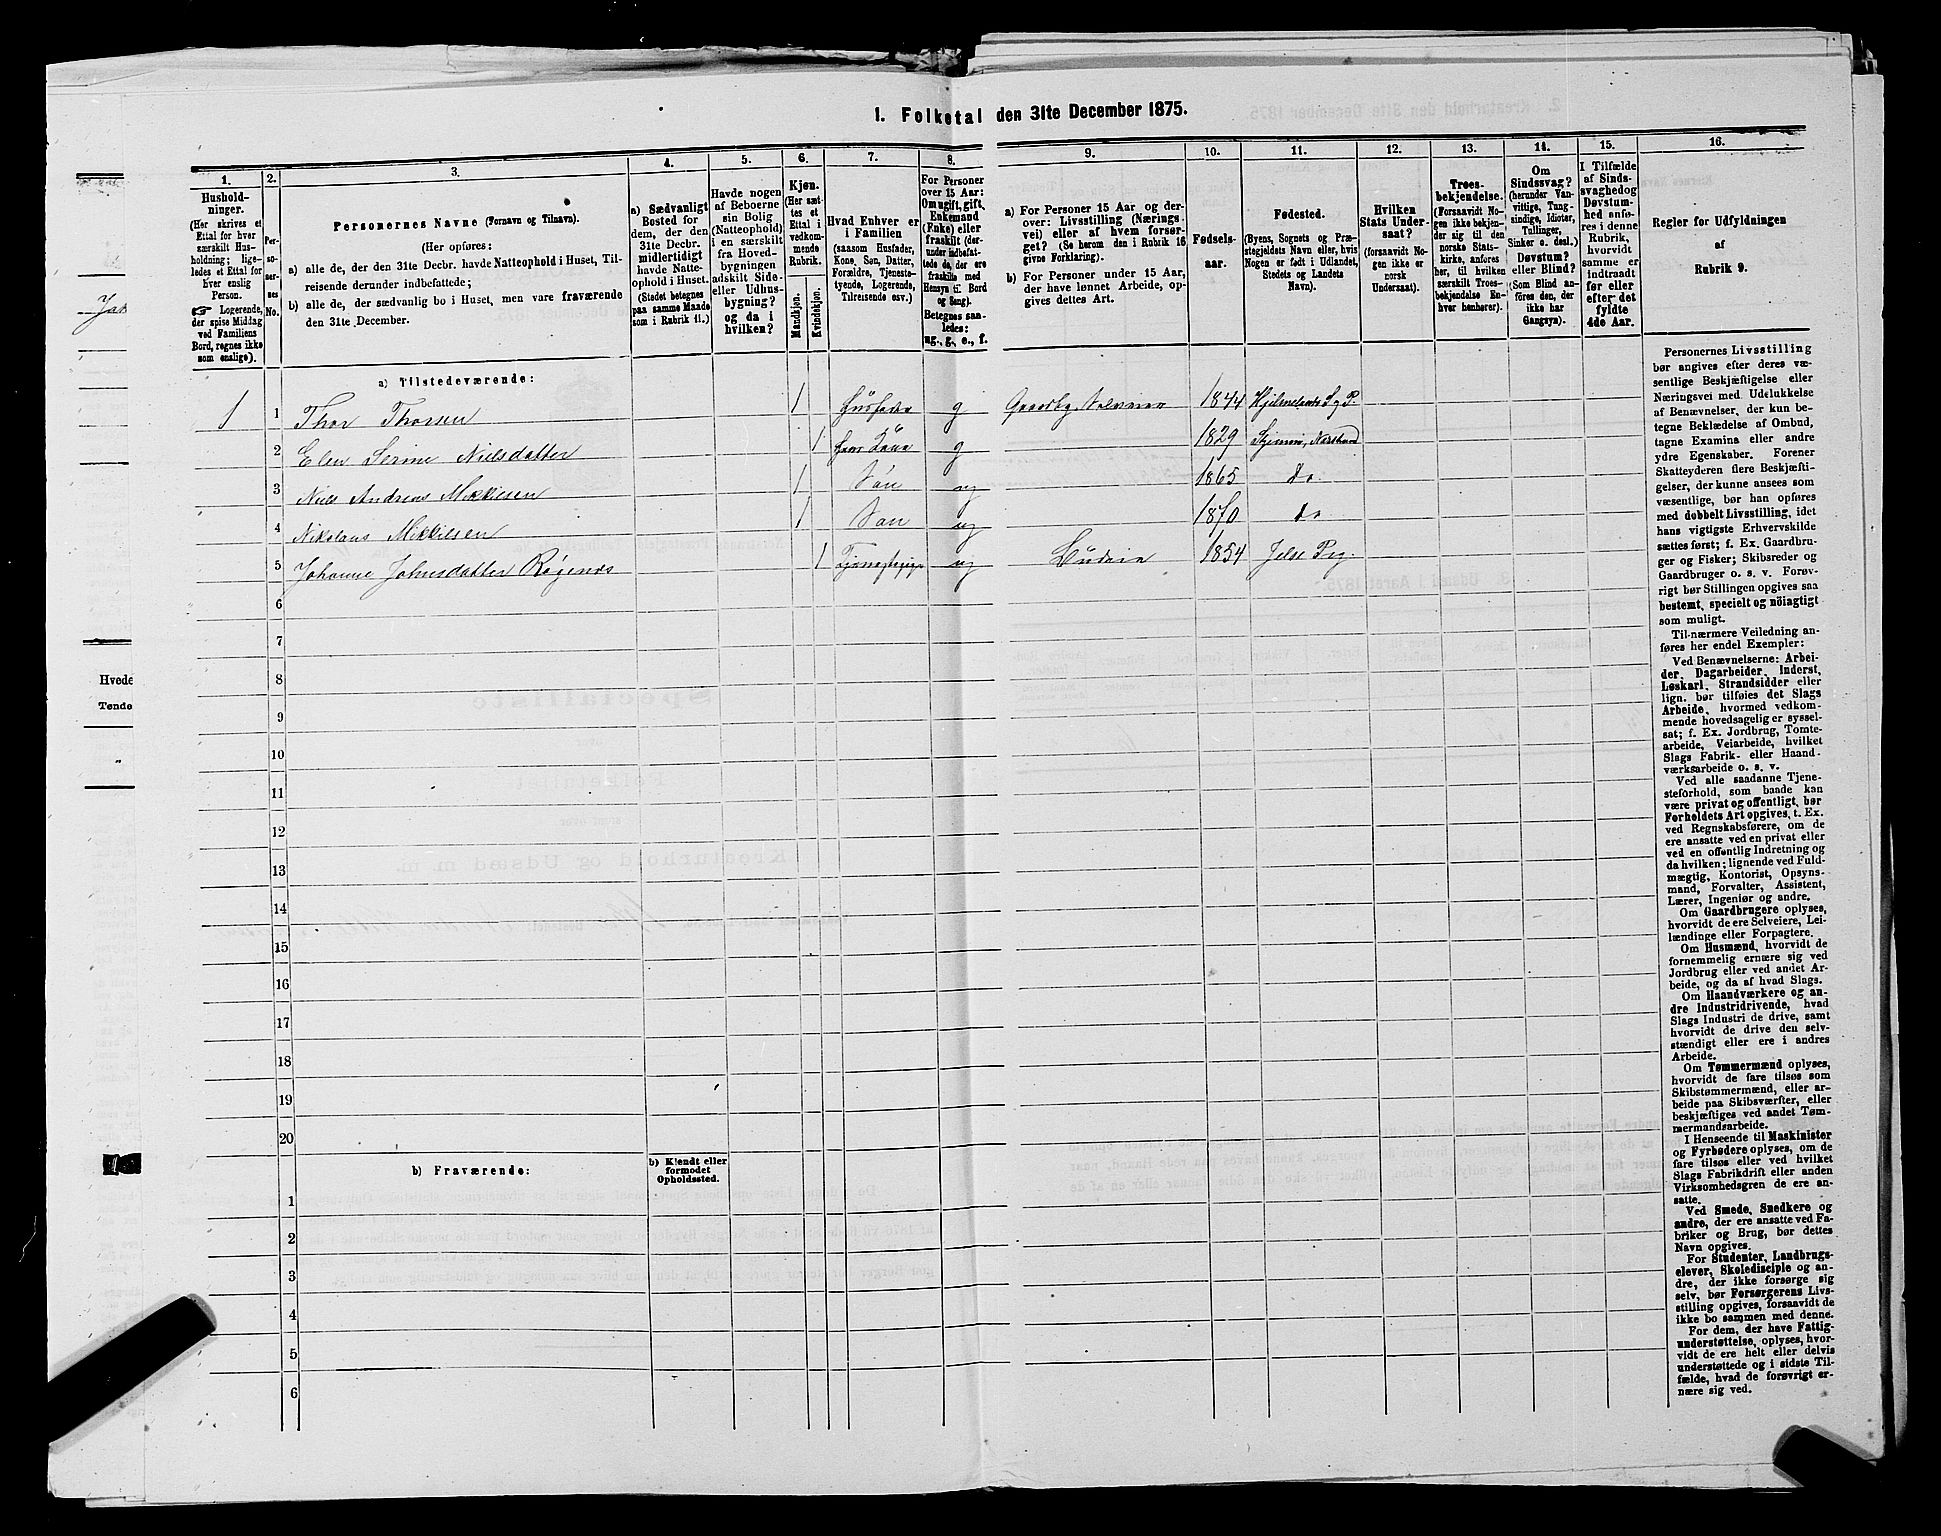 1. Folketal den 31te December 1875.
1.
2.
3.
4.
5.
6.
7.
8.
9.
10.
11.
12.
13.
14.
15.
16.
Hushold-
ninger.
(Her skrives et
Ettal for hver
særskilt Hus-
holdning; lige-
ledes et Ettal for
hver enslig
Person.
☞ Logerende,
der spise Middag
ved Familiens
Bord, regnes ikke
som enslige).
Per-
so-
ner-
nes
No.
Personernes Navne (Fornavn og Tilnavn).
(Her opføres:
a) alle de, der den 31te Decbr. havde Natteophold i Huset, Til-
reisende derunder indbefattede;
b) alle de, der sædvanlig bo i Huset, men vare fraværende
den 31te December.
a) Sædvanligt
Bosted for
dem, der den
31te Decbr.
midlertidigt
havde Natte-
ophold i Huset.
(Stedet betegnes
paa samme Maade
som i Rubrik 11.)
Havde nogen
af Beboerne
sin Bolig
(Natteophold)
i en særskilt
fra Hoved-
bygningen
adskilt Side-
eller Udhus-
bygning?
og da i
hvilken?
Kjøn.
(Her sæt-
tes et
Ettal i
vedkom-
mende
Rubrik.
Mandkjøn.
Kvindekjøn.
Hvad Enhver er
i Familien
(saasom Husfader,
Kone, Søn, Datter,
Forældre, Tjeneste-
tyende, Logerende,
Tilreisende osv.)
For Personer
over 15 Aar:
Om ugift, gift,
Enkemand
(Enke) eller
fraskilt (der-
under indbefat-
tede de, der ere
fraskilte med
Hensyn til Bord
og Seng).
Betegnes saa-
ledes:
ug., g., e., f.
a) For Personer 15 Aar og der-
over: Livsstilling (Nærings-
vei) eller af hvem forsør-
get? (Se herom den i Rubrik 16
givne Forklaring).
b) For Personer under 15 Aar,
der have lønnet Arbeide, op-
gives dettes Art.
Fødsels-
aar.
Fødested.
(Byens, Sognets og Præ-
stegjeldets Navn eller, hvis
Nogen er født i Udlandet,
Stedets og Landets
Navn).
Hvilken
Stats Under-
saat?
(forsaavidt No-
gen ikke er
norsk
Undersaat).
Troes-
bekjendelse.
(Forsaavidt No-
gen ikke bekjen-
der sig til den
norske Stats-
kirke, anføres
her, til hvilken
særskilt Troes-
bekjendelse En-
hver henhører).
Om
Sindssvag?
(herunder Van-
vittige, Tung-
sindige, Idioter,
Tullinger,
Sinker o. desl.)
Døvstum?
eller Blind?
(Som Blind an-
føres den, der
ikke har
Gangsyn).
I Tilfælde
af Sinds-
svaghed og
Døvstum-
hed anfø-
res i denne
Rubrik,
hvorvidt
samme er
indtraadt
før eller
efter det
fyldte
4de Aar.
Regler for Udfyldningen
af
Rubrik 9.
a) Tilstedeværende:
1 1 Thor Thorsen 1 Husfader g Gaardbr. Selveier 1844 Hjelmelands S. g P.
2 Elen Serine Nielsdatter 1 hans Kone g 1829
3 Niels Andreas Mikkelsen 1 Søn ug 1865 do
4 Nikolaus Mikkelsen 1 Søn ug 1870 do
5 Johanne Johnsdatter 1 Tjenestepige ug 1854 Jelse Prg.
6
7
8
9
10
11
12
13
14
15
16
17
18
19
20
b) Fraværende:
b) Kjendt eller
formodet
Opholdssted.
1
2
3
4
5
6
Personernes Livsstilling
bør angives efter deres væ-
sentlige Beskjæftigelse eller
Næringsvei med Udelukkelse
af Benævnelser, der kun be-
tegne Beklædelse af Ombud,
tagne Examina eller andre
ydre Egenskaber. Forener
Skatteyderen flere Beskjæfti-
gelser, der kunne ansees som
væsentlige, bør han opføres
med dobbelt Livsstilling, idet
hans vigtigste Erhvervskilde
sættes først; f. Ex. Gaardbru-
ger og Fisker; Skibsreder og
Gaardbruger o. s. v. Forøv-
rigt bør Stillingen opgives saa
bestemt, specielt og nøiagtigt
som muligt.
Til nærmere Veiledning an-
føres her endel Exempler:
Ved Benævnelserne: Arbei-
der, Dagarbeider, Inderst,
Løskarl, Strandsidder eller
lign. bør tilføies det Slags
Arbeide, hvormed vedkom-
mende hovedsagelig er syssel-
sat; f. Ex. Jordbrug, Tomte-
arbeide, Veiarbeide, hvilket
Slags Fabrik- eller Haand-
værksarbeide o. s. v.
Ved alle saadanne Tjene-
steforhold, som baade kan
være privat og offentligt, bør
Forholdets Art opgives, t. Ex.
ved Regnskabsførere, om de
ere ansatte ved en privat eller
ved en offentlig Indretning og
da hvilken; lignende ved Fuld-
mægtig, Kontorist, Opsyns-
mand, Forvalter, Assistent,
Lærer, Ingeniør og andre.
Om Gaardbrugere oplyses,
hvorvidt de ere Selveiere, Lei-
lændinge eller Forpagtere.
Om Husmænd, hvorvidt de
fornemmelig ernære sig ved
Jordbrug eller ved andet Ar-
beide, og da af hvad Slags.
Om Haandværkere og an-
dre Industridrivende, hvad
Slags Industri de drive, samt
hvorvidt de drive den selv-
stændigt eller ere i andres
Arbeide.
Om Tømmermænd oplyses,
hvorvidt de fare tilsøs som
Skibstømmermænd, eller ar-
beide paa Skibsværfter, eller
beskjæftiges ved andet Tøm-
mermandsarbeide.
I Henseende til Maskinister
og Fyrbødere oplyses, om de
fare tilsøs eller ved hvilket
Slags Fabrikdrift eller anden
Virksomhedsgren de ere an-
satte.
Ved Smede, Snedkere og
andre, der ere ansatte ved Fa-
briker og Brug, bør dettes
Navn opgives.
For Studenter, Landbrugs-
elever, Skoledisciple og an-
dre, der ikke forsørge sig
selv, bør Forsørgerens Livs-
stilling opgives, forsaavidt de
ikke bo sammen med denne.
For dem, der have Fattig-
understøttelse, oplyses, hvor-
vidt de ere helt eller delvis
understøttede og i sidste Til-
fælde, hvad de forøvrigt er-
nære sig ved.
Hvede
Tønde